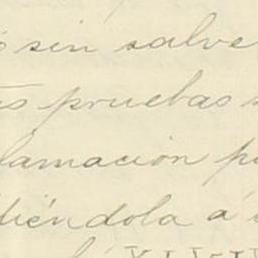 sin salve
pruebas
lamación p
diéndola á